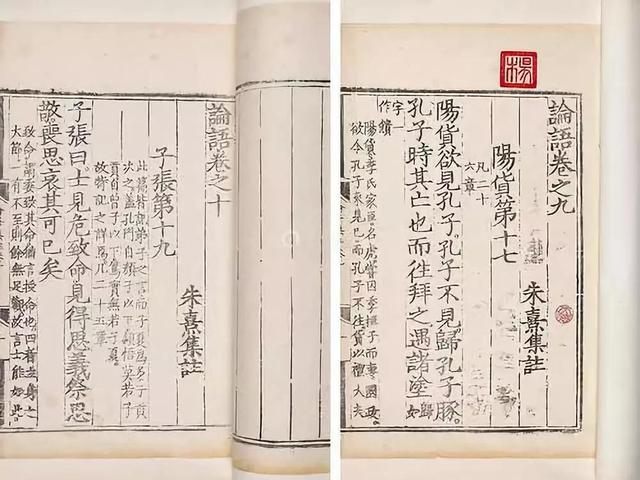 楊
論語卷之九
朱熹集註
陽貨第十七
凡二十
六章
陽貨欲見孔子。孔子不見。歸孔子豚。
孔子時其亡也而往拜之遇諸塗 歸
字一
作饋
陽貨季氏家臣名虎嘗囚季桓子而專國政
欲令孔子來見己而孔子不往貨以禮大夫
論語卷之十
朱熹集註
子張第十九
此篇皆記弟子之言而子夏為多子貢
次之蓋孔門自顏子以下穎悟莫若子
貢自曾子以下篤實無若子夏。
故特記之詳焉凡二十五章
子張曰。士見危致命見得思義祭思
敬喪思哀其可已矣
致命謂委致其命猶言授命也四者立身之
大節一有不至則餘無足觀故言士能如此。